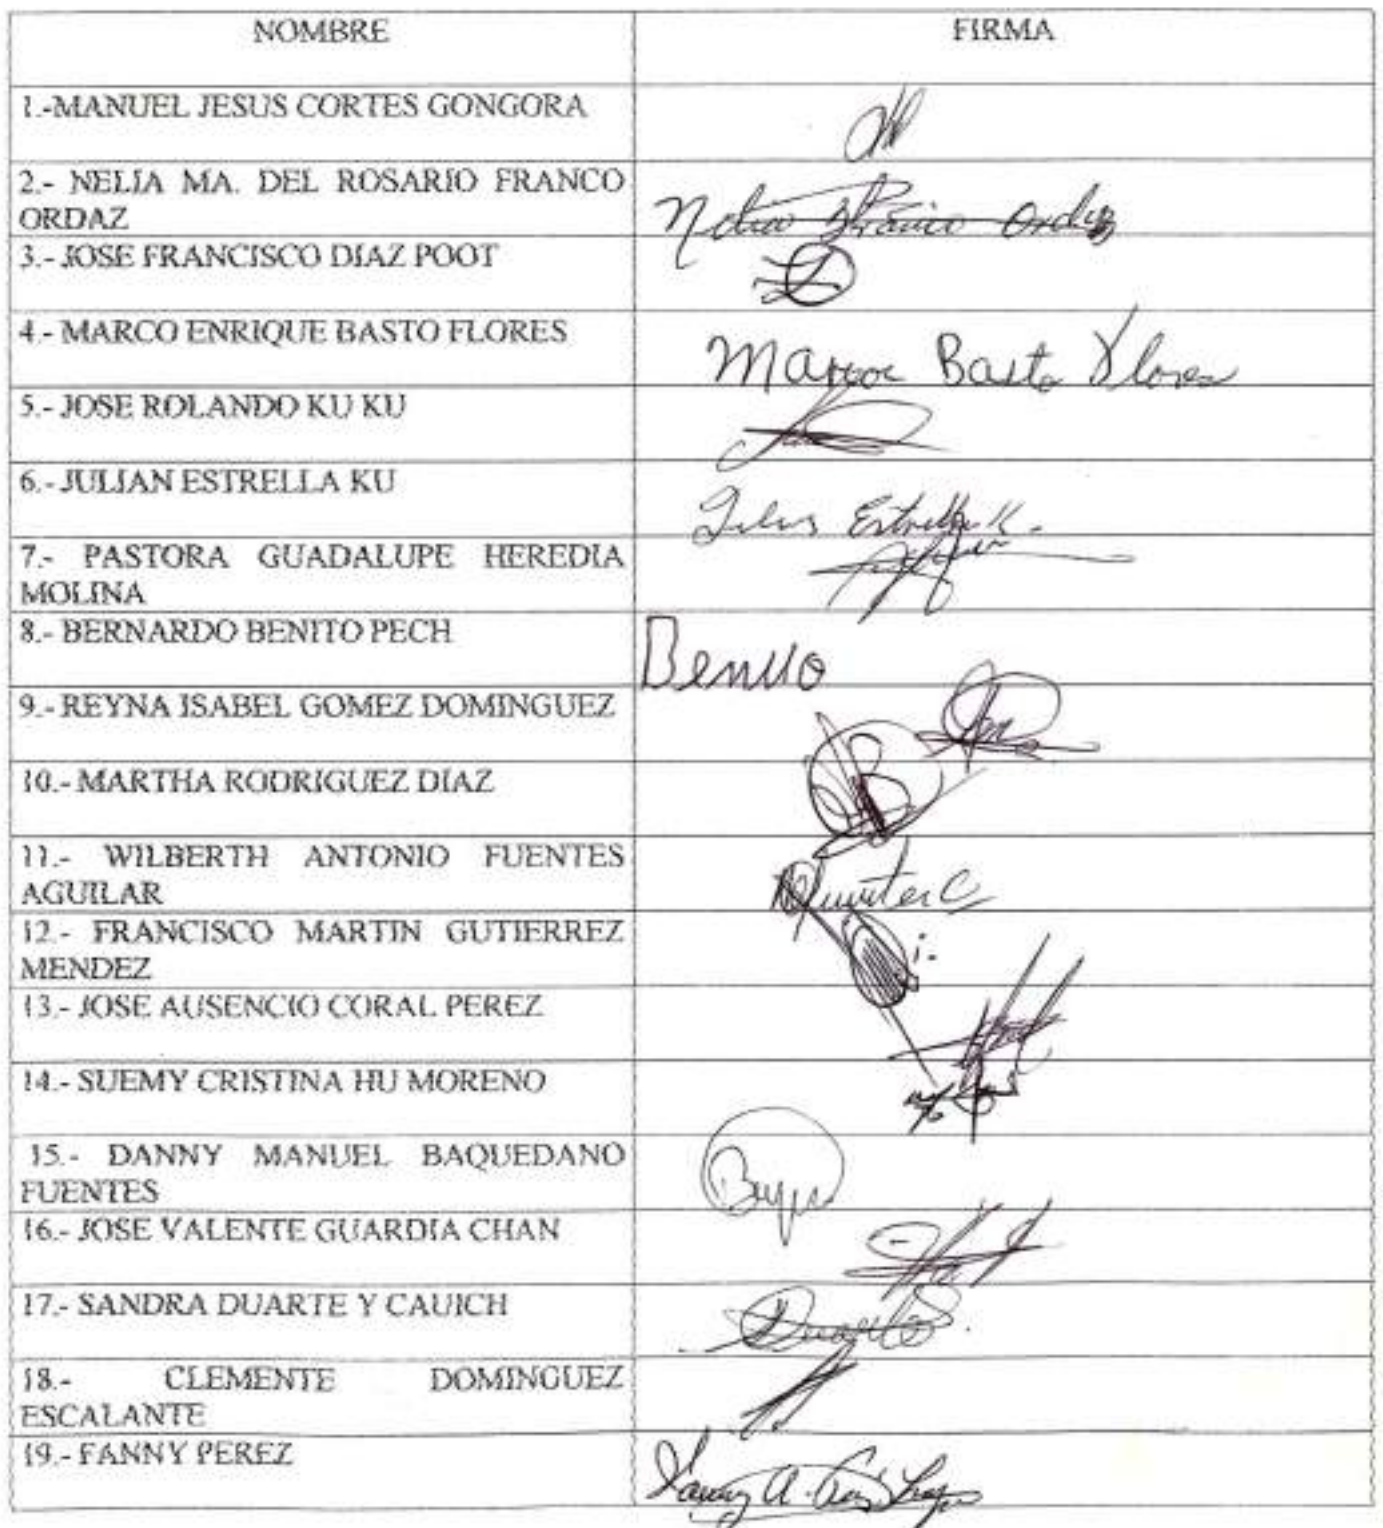 NOMBRE FIRMA
1.-MANUEL JESUS CORTES GONGORA
2.- NELIA MA. DEL ROSARIO FRANCO
ORDAZ
Nelia Franco Ordaz
3.- JOSE FRANCISCO DIAZ POOT
4.- MARCO ENRIQUE BASTO FLORES
Marcoe Basto Flores
5.- JOSE ROLANDO KU KU
6.- JULIAN ESTRELLA KU
Estrella K.
7.- PASTORA GUADALUPE HEREDIA
MOLINA
8.- BERNARDO BENITO PECH
Benito
9.- REYNA ISABEL GOMEZ DOMINGUEZ
10.- MARTHA RODRIGUEZ DIAZ
11.- WILBERTH ANTONIO FUENTES
AGUILAR
12.- FRANCISCO MARTIN GUTIERREZ
MENDEZ
13.- JOSE AUSENCIO CORAL PEREZ
14.- SUEMY CRISTINA HU MORENO
15.- DANNY MANUEL BAQUEDANO
FUENTES
16.- JOSE VALENTE GUARDIA CHAN
17.- SANDRA DUARTE Y CAUICH
Duarte S.
18.- CLEMENTE DOMINGUEZ
ESCALANTE
19.- FANNY PEREZ
Fanny A.